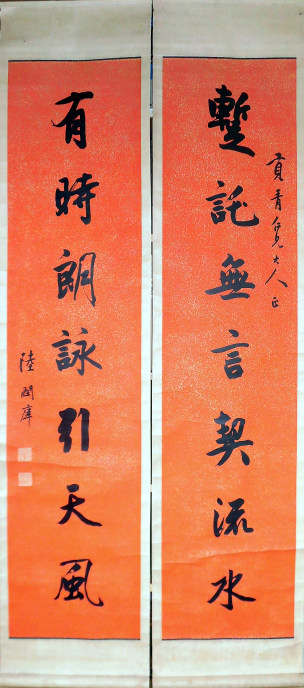 貢青仁兄大人正
蹔託無言契流水
有時朗詠引天風
陸潤庠